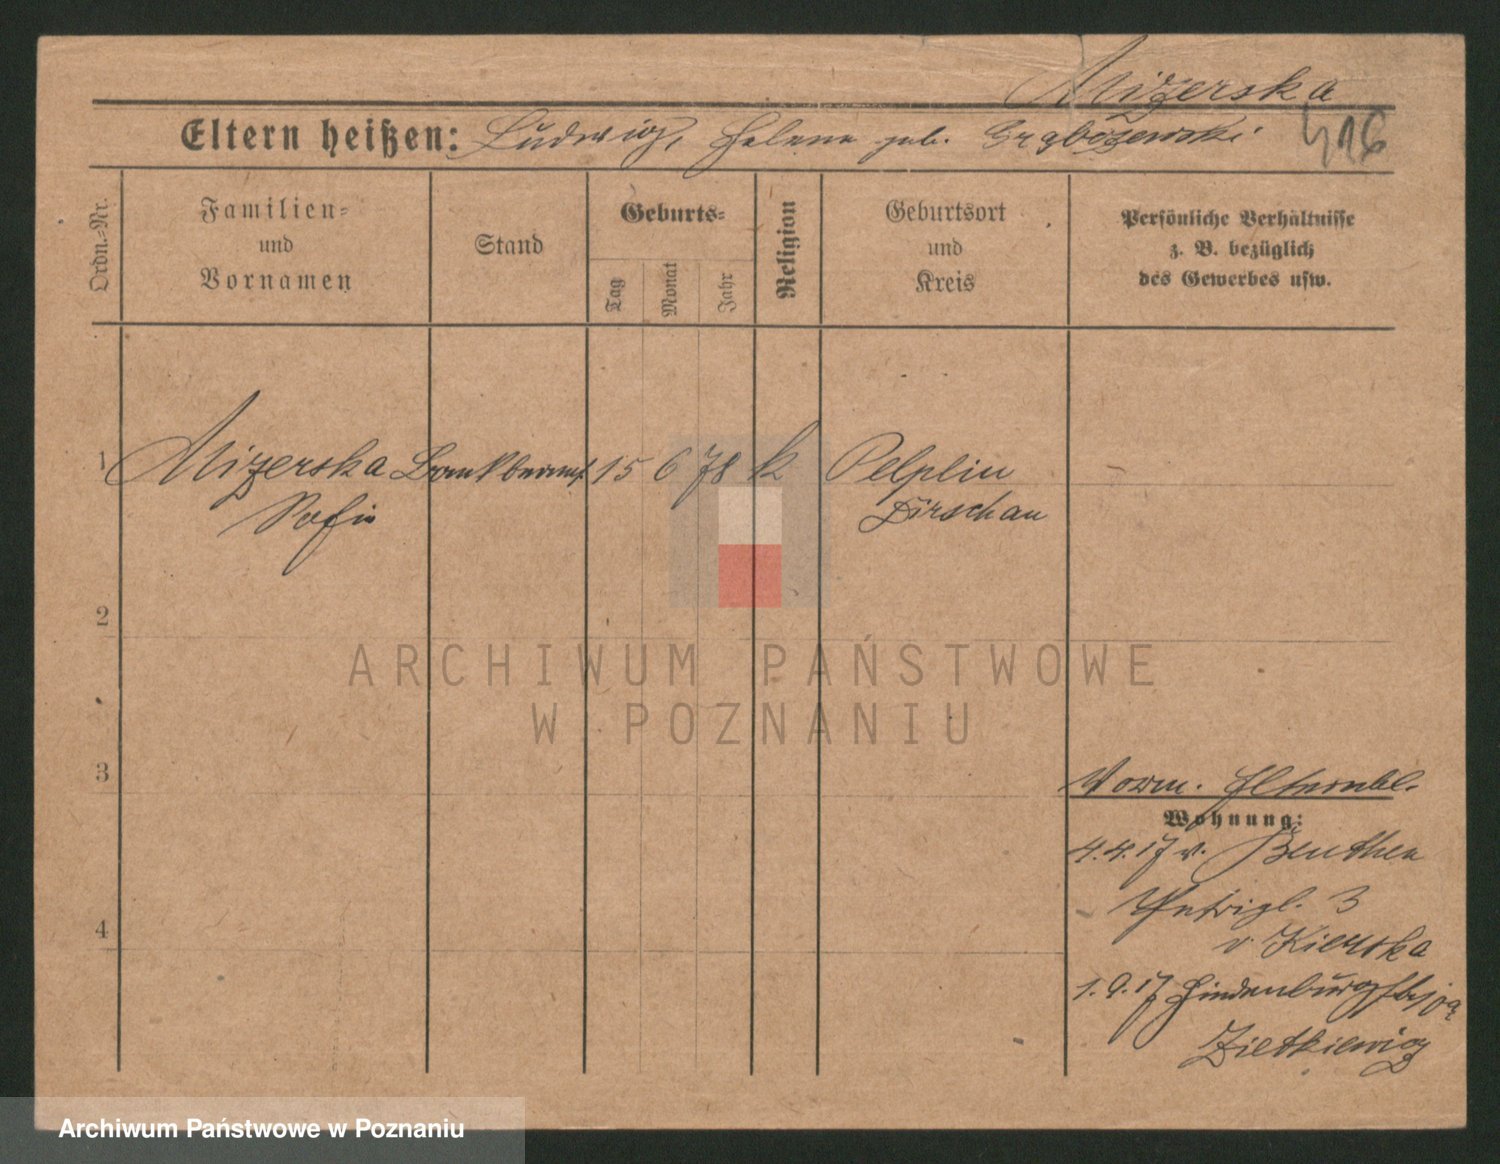 Mizerska
Eltern heißen: Ludwig, Helene geb. Grabozewski
416
Ordn.=Nr.
Familien=
und
Vornamen
Stand
Geburts=
Tag
Monat
Jahr
Religion
Geburtsort
und
Kreis
Persönliche Verhältnisse
z. B. bezüglich
des Gewerbes usw.
1 Mizerska Bankbeamt. 15 6 78 k Pelplin
Sofie Dirschau
2
ARCHIWUM PAŃSTWOWE
W POZNANIU
3
Vorm. Elternbl.
Wohnung:
4.4.17 v. Beuthen
3
4
v Kierska
1.9.17 Hindenburgstr
Zietkiewicz
Archiwum Państwowe w Poznaniu